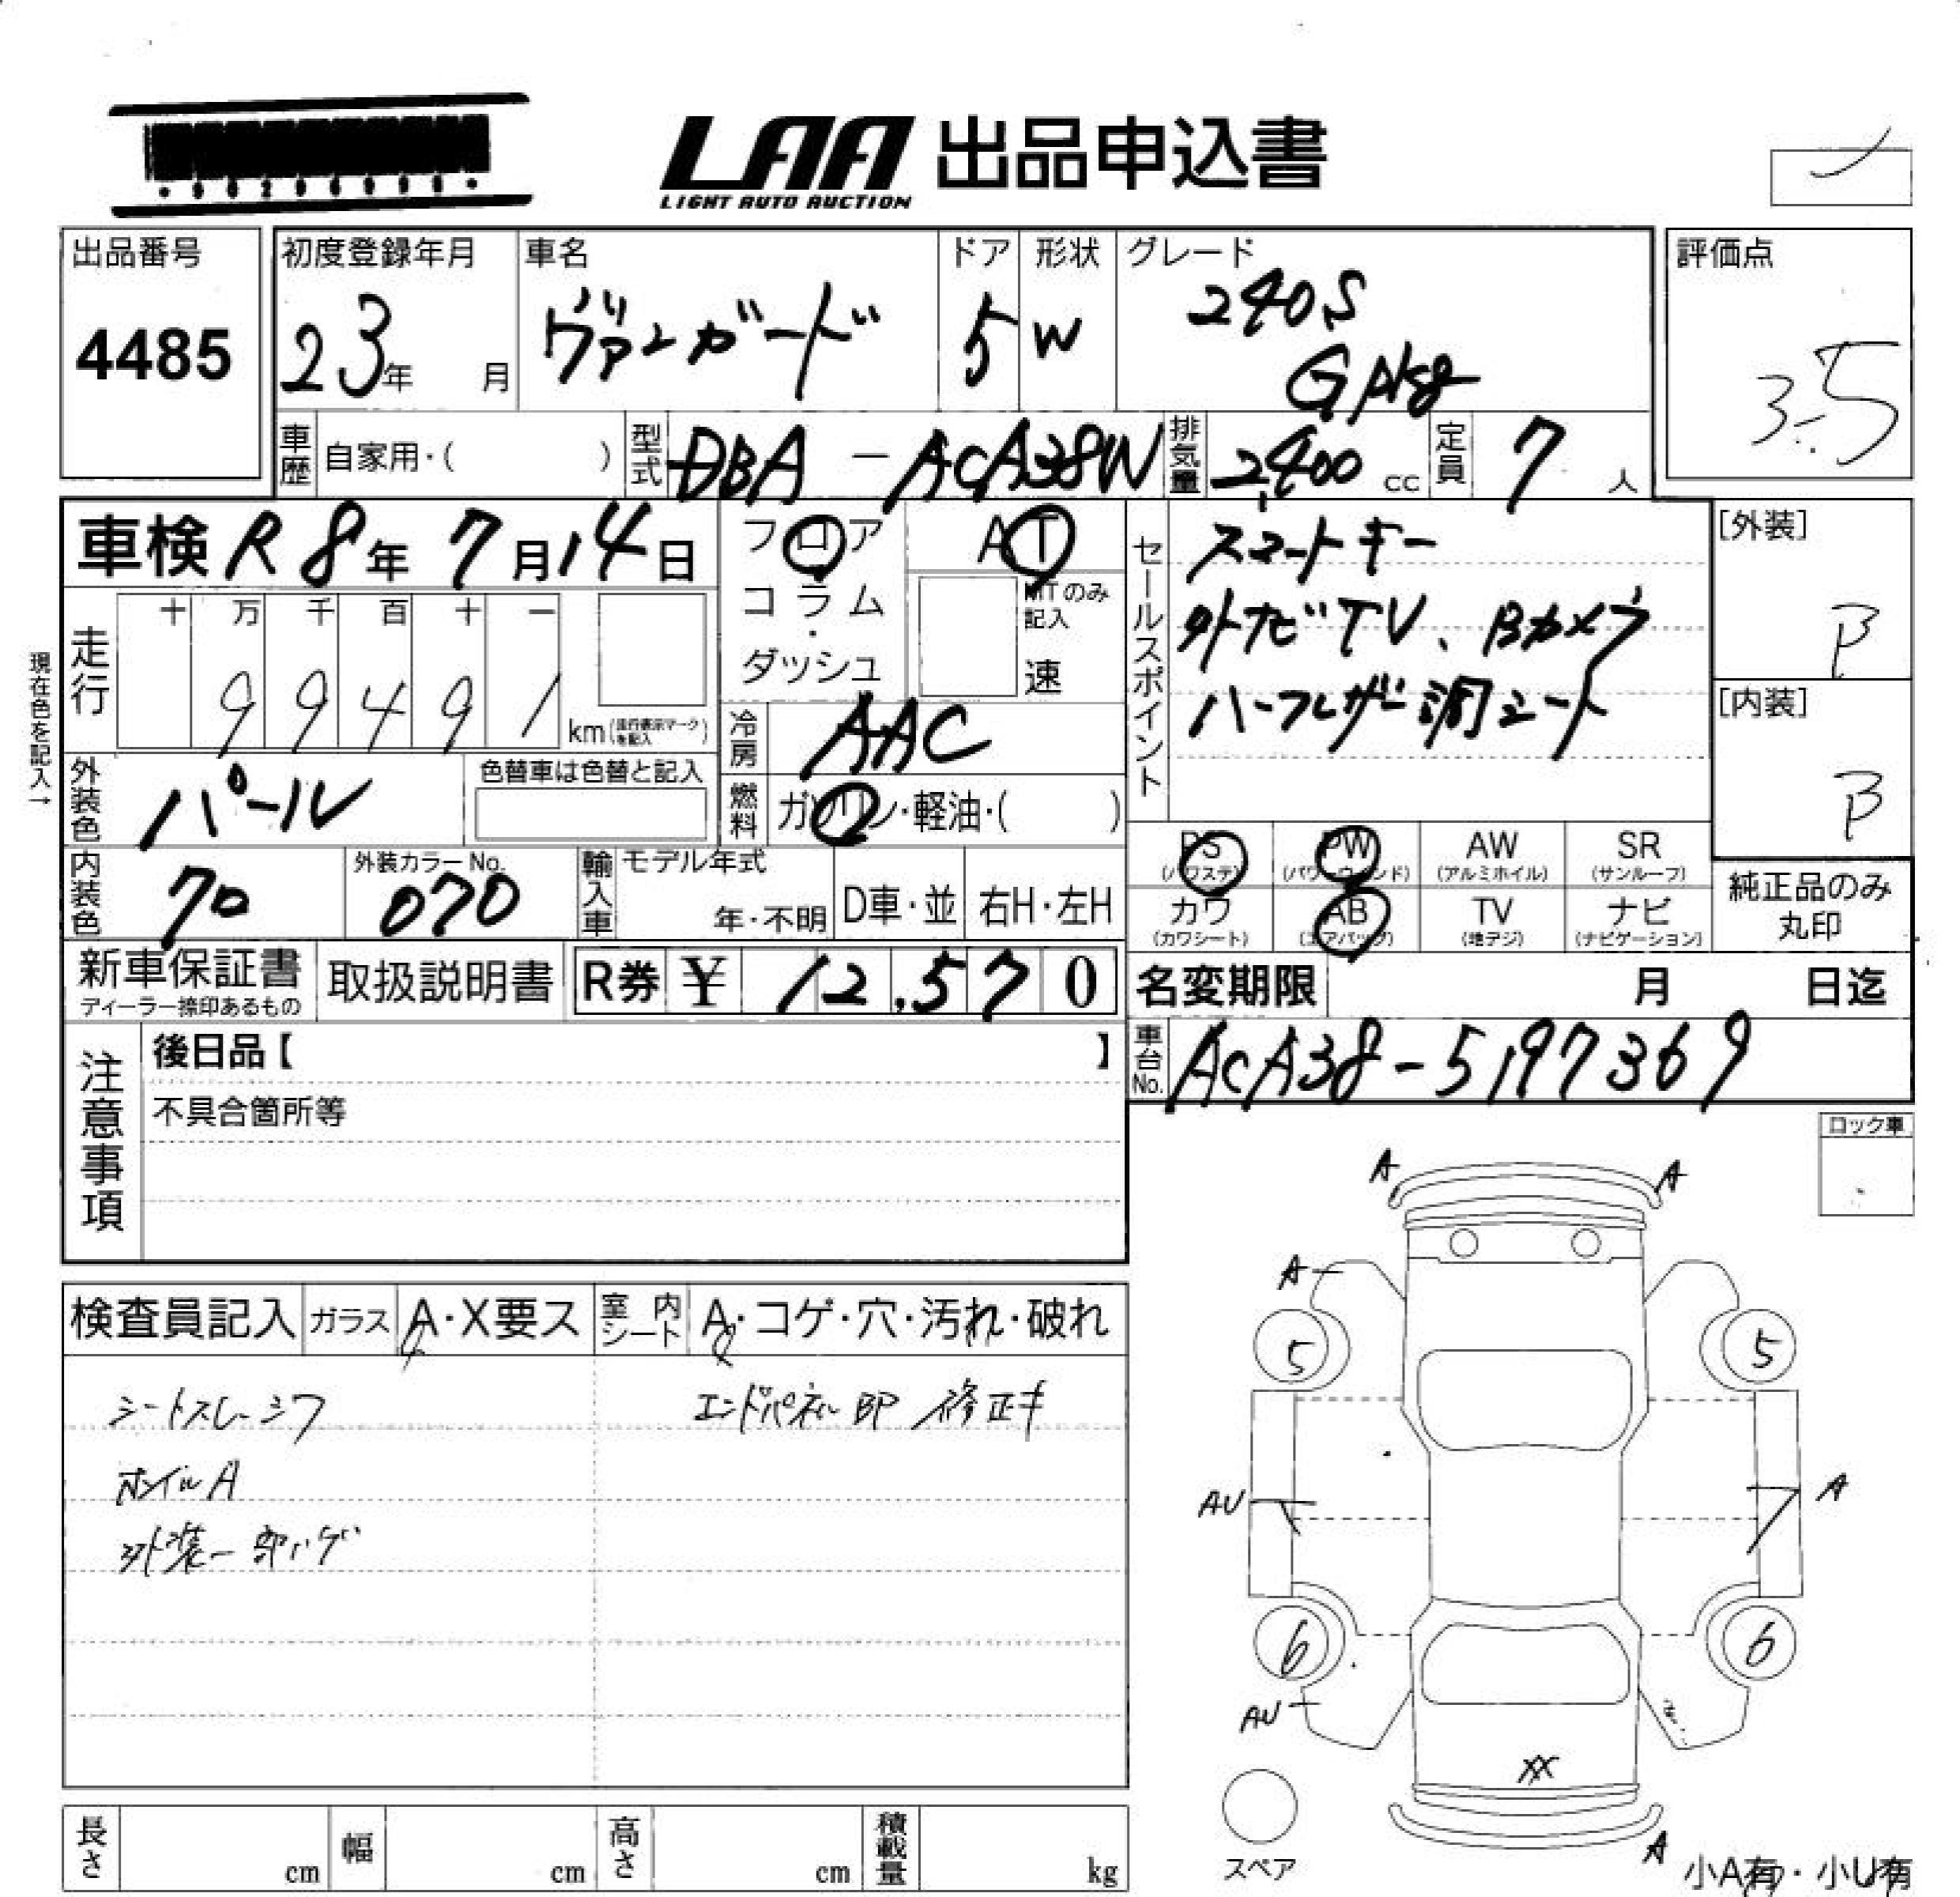 LAA 出品申込書
LIGHT AUTO AUCTION
出品番号
4485
初度登録年月
23年 月
車名
ヴァンガード
ドア
5
形状
W
グレード
240S
G Pkg
評価点
3.5
車歴 自家用・( )
型式 DBA-ACA38W
排気量 2,400 cc
定員 7 人
車検 R8年 7月14日
フロア
コラム
・
ダッシュ
AT
MTのみ
記入
速
セールスポイント
スマートキー
外ナビTV、Bカメラ
ハーフレザー調シート
[外装]
B
[内装]
B
現在色を記入→
走行
十 万 千 百 十 一
9 9 4 9 1
km(走行表示マークを記入)
冷房 AAC
外装色 パール
色替車は色替と記入
燃料 ガソリン・軽油・( )
内装色 70
外装カラーNo.
070
輸入車
モデル年式
年・不明
D車・並
右H・左H
PS
(パワステ)
PW
(パワーウィンド)
AW
(アルミホイル)
SR
(サンルーフ)
カワ
(カワシート)
AB
(エアバッグ)
TV
(地デジ)
ナビ
(ナビゲーション)
純正品のみ
丸印
新車保証書
ディーラー捺印あるもの
取扱説明書
R券 ¥ 12,570
名変期限 月 日迄
車台No. ACA38-5197369
注意事項
後日品【 】
不具合箇所等
ロック車
検査員記入
ガラス A・X要ス
室内シート A・コゲ・穴・汚れ・破れ
シートスレ・シワ
エンドパネル BP 修正キ
ホイルA
外装一部ハゲ
A
A
A
5
5
AU
A
6
6
AU
XX
A
スペア
小A有・小U有
長さ cm
幅 cm
高さ cm
積載量 kg